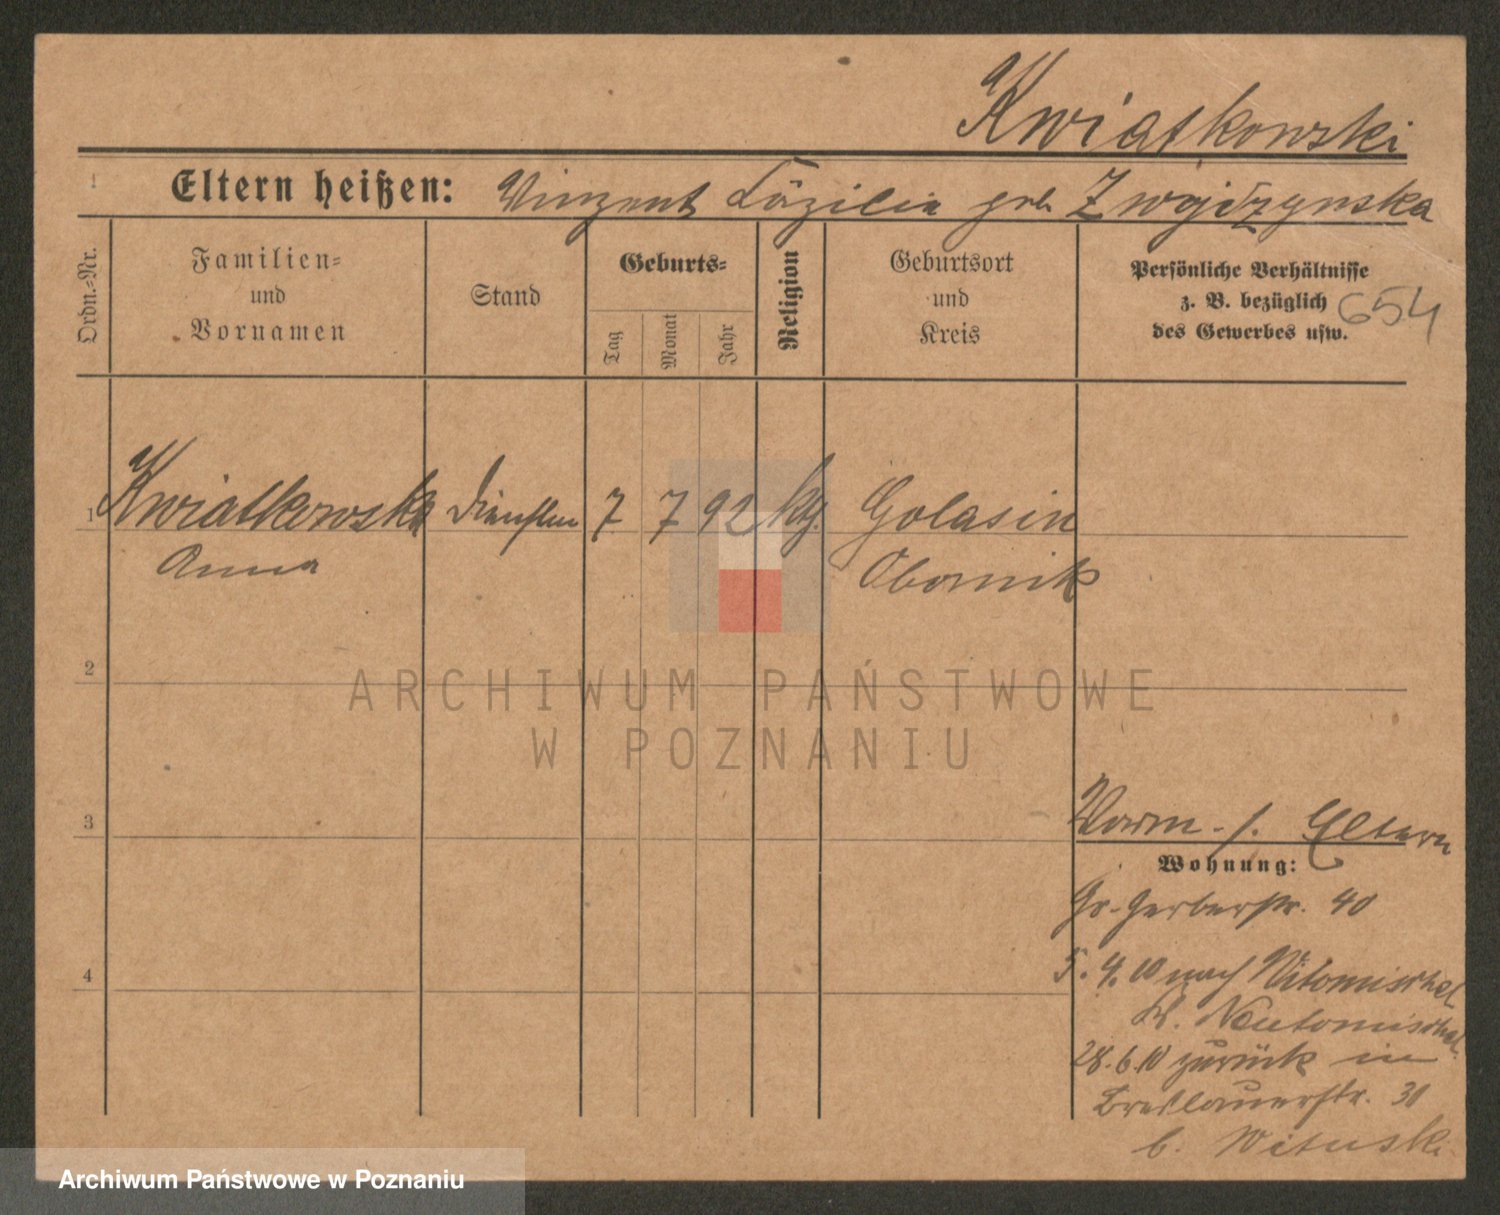 Kwiatkowski
Eltern heißen: Vinzent Cäzilia geb. Zwojdzynska
Ordn.-Nr.
Familien-
und
Vornamen
Stand
Geburts-
Tag
Monat
Jahr
Religion
Geburtsort
und
Kreis
Persönliche Verhältnisse
z. B. bezüglich
des Gewerbes usw.
654
1 Kwiatkowska Dienstm 7 7 92 kth. Golasin
Anna Obornik
2
3
4
Vorm. s. Eltern
Wohnung:
Gr. Gerberstr. 40
5. 4. 10 nach Witomischel
Kr. Neutomischel
28. 6. 10 zurück in
Breslauerstr. 31
b. Wituski
ARCHIWUM PAŃSTWOWE
W POZNANIU
Archiwum Państwowe w Poznaniu